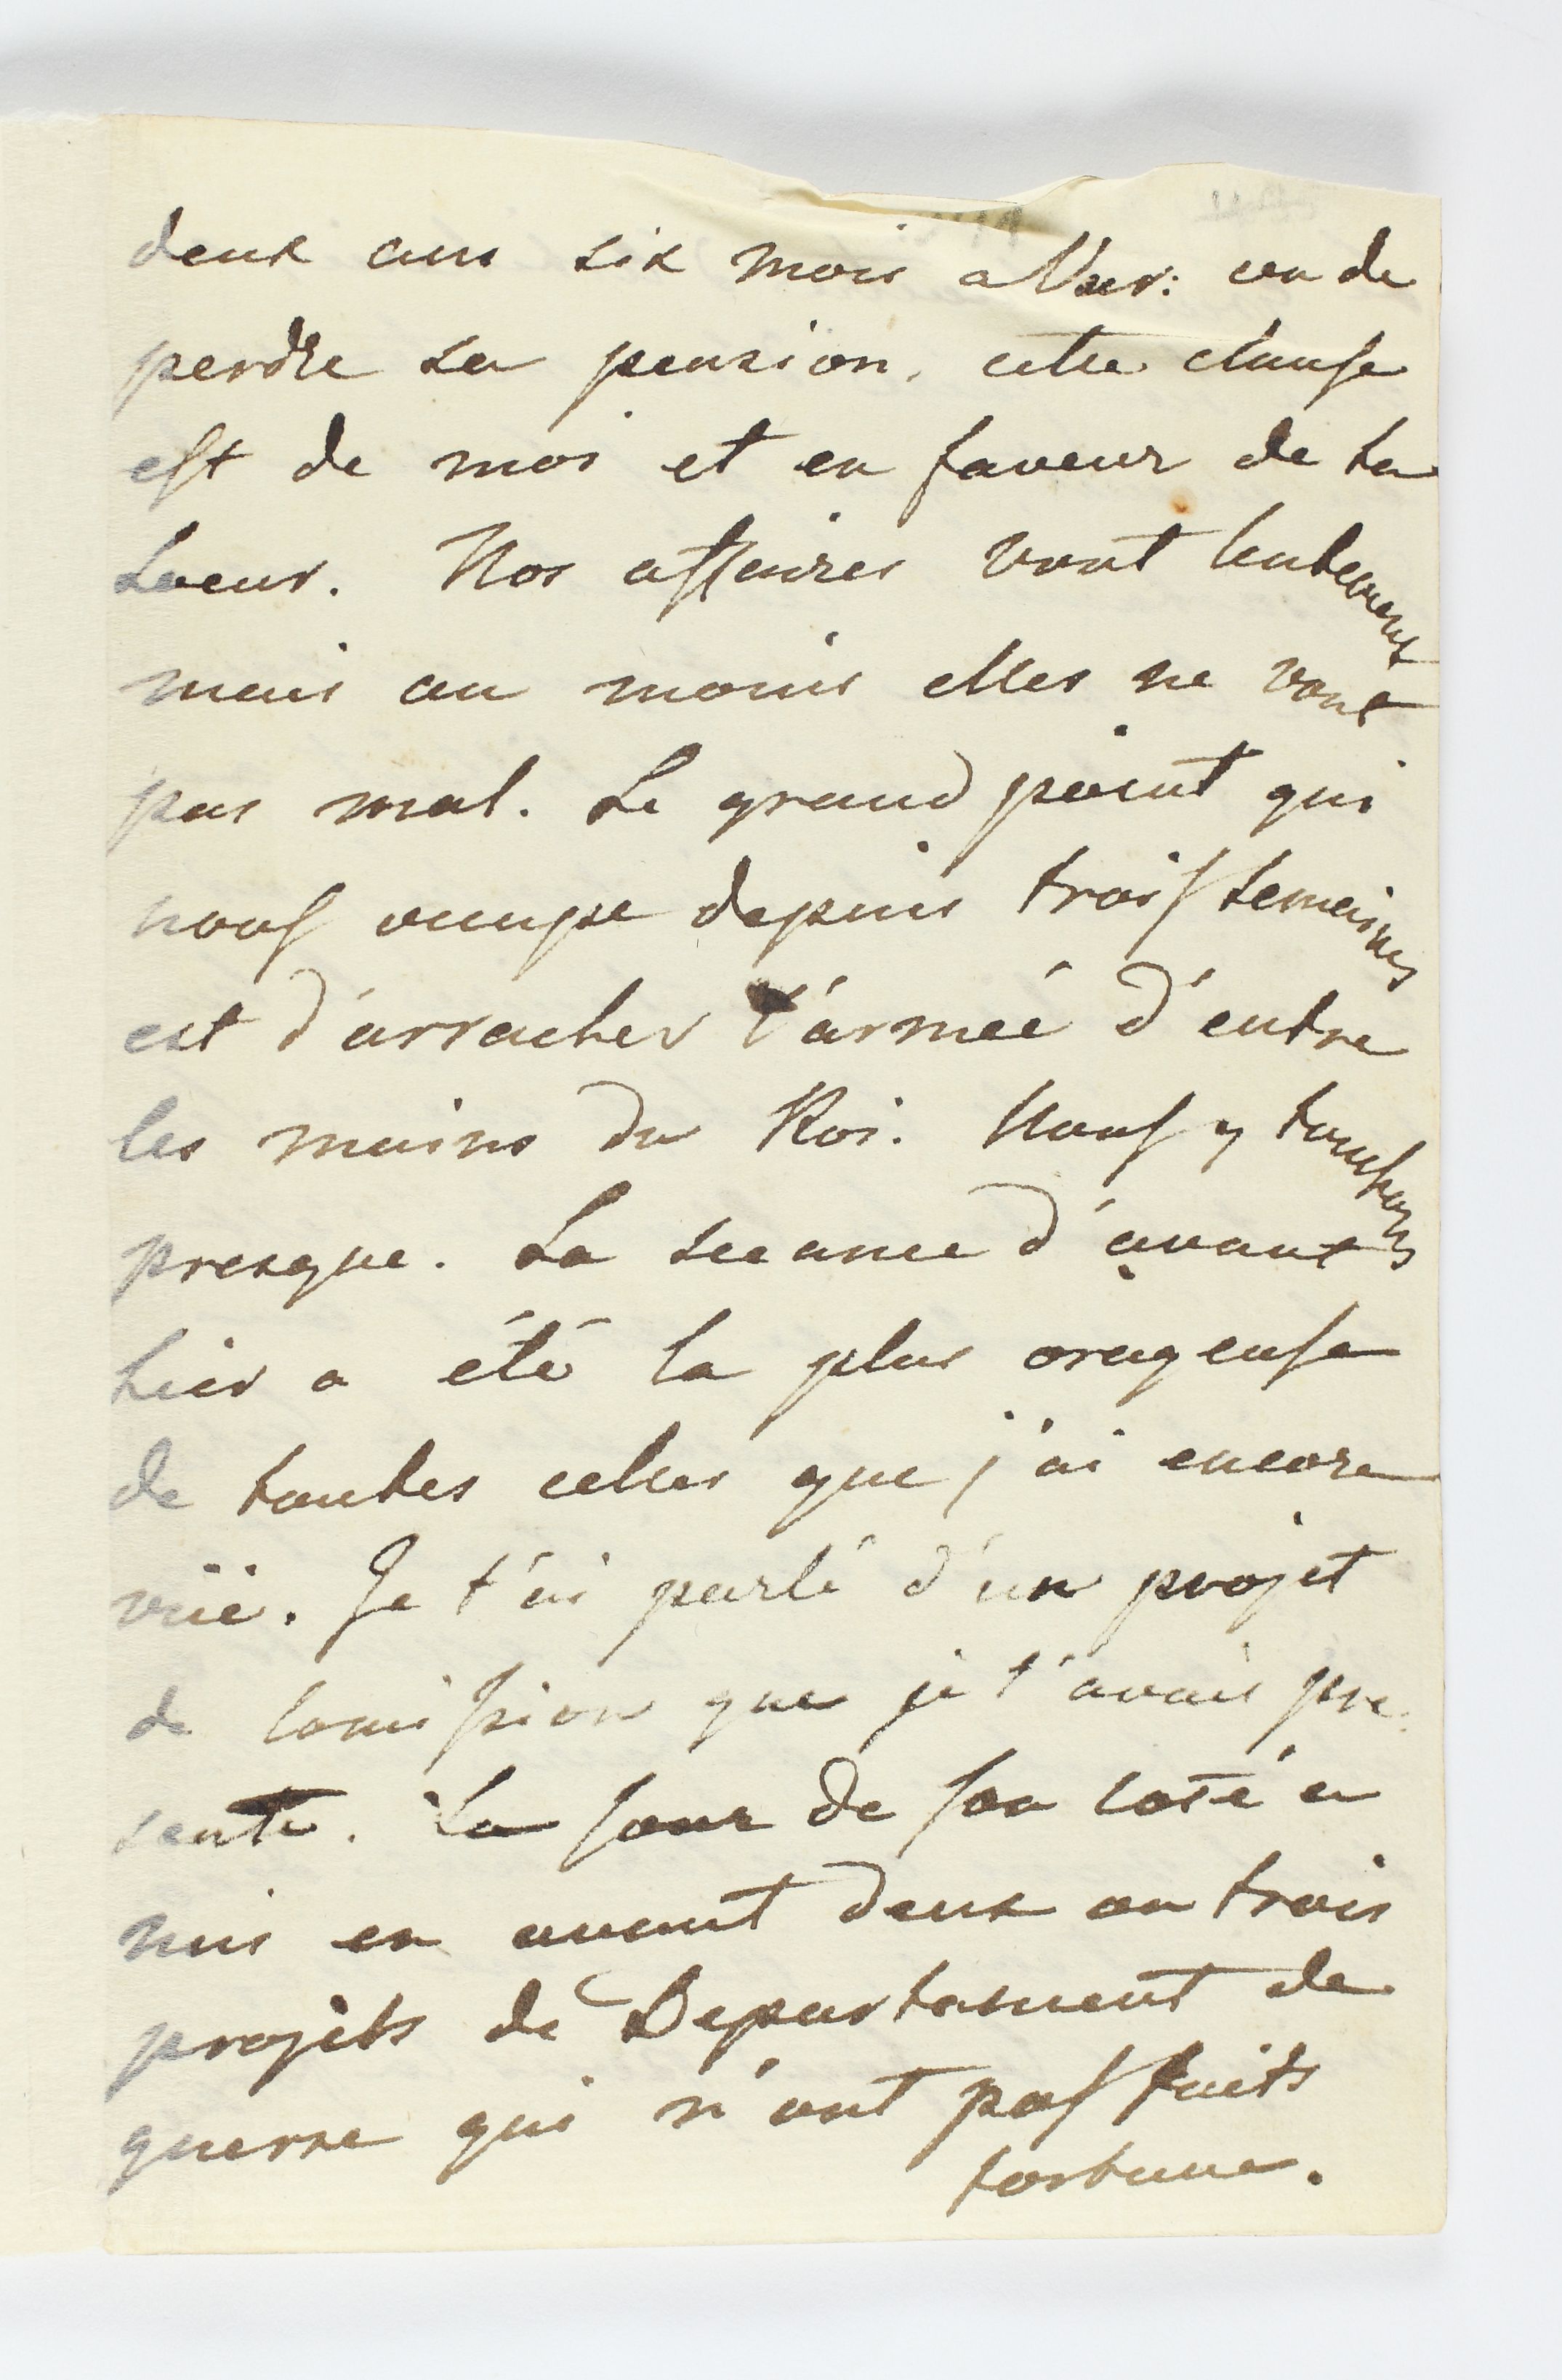 deux ans six mois a Var: ou de
perdre sa pension. cette clause
est de moi et en faveur de ta
soeur. Nos affaires vont lentement
mais au moins elles ne vont
pas mal. Le grand point qui
nous occupe depuis trois semaines
est d'arracher l'armeé d'entre
les mains du Roi. Nous y touchons
presque. La seeance d'avant
hier a été la plus orageuse
de toutes celles que j'ai encore
vüe. Je t'ai parlé d'un projet
de comission que je t'avais pre
senté. La Cour de son coté a
mis en avant deux ou trois
projets de Departament de
guerre qui n'ont pas faits
fortune.